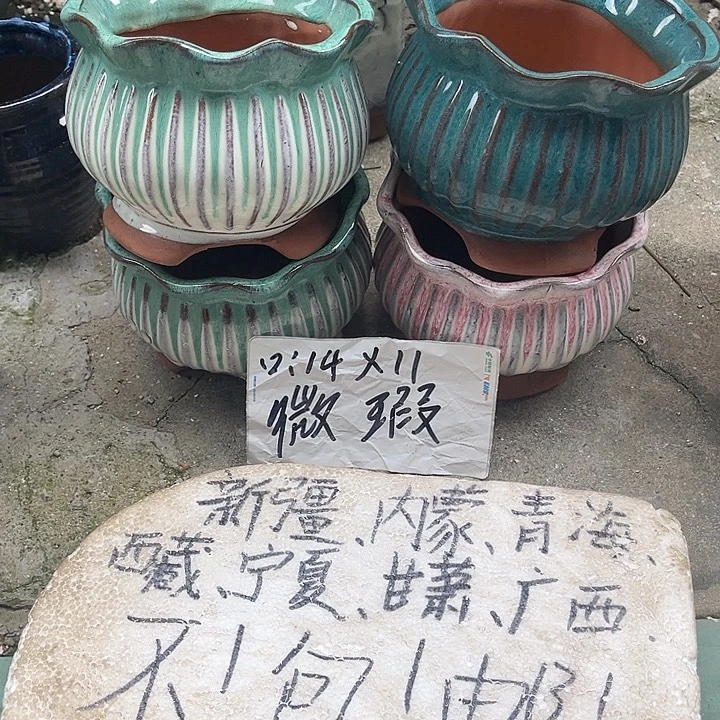 口:14×11
微瑕
新疆、内蒙、青海、
西藏、宁夏、甘肃、广西
不包邮